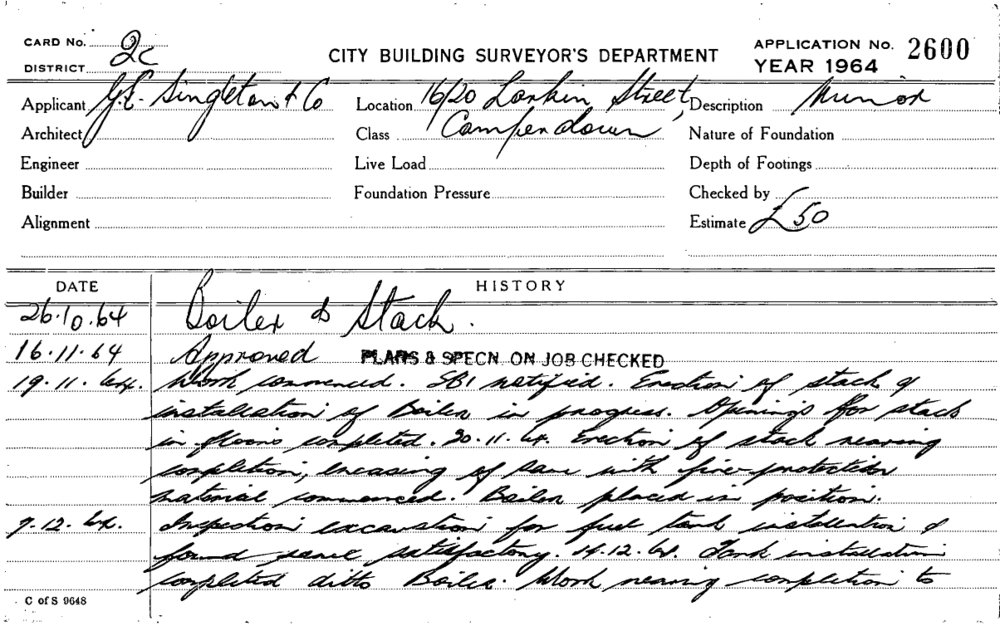 CARD No. 2c
DISTRICT
CITY BUILDING SURVEYOR'S DEPARTMENT
APPLICATION No. 2600
YEAR 1964
Applicant J.E. Singleton & Co
Location 16/20 Larkin Street,
Description Minor
Architect
Class Camperdown
Nature of Foundation
Engineer
Live Load
Depth of Footings
Builder
Foundation Pressure
Checked by
Alignment
Estimate £50
DATE
HISTORY
26.10.64 Boiler & Stack.
16.11.64 Approved PLANS & SPECN. ON JOB CHECKED
19.11.64. Work commenced. SBI notified. Erection of stack &
installation of Boiler in progress. Openings for stack
in floors completed. 30.11.64. Erection of stack nearing
completion, encasing of same with fire-protection
material commenced. Boiler placed in position.
9.12.64. Inspection excavation for fuel tank installation &
found same satisfactory. 14.12.64. Tank installation
completed ditto Boiler. Work nearing completion to
C of S 9648